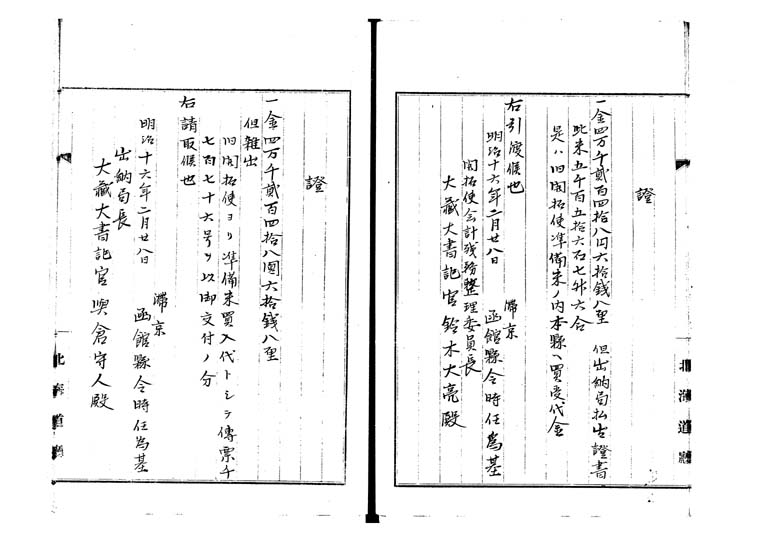 證
一金四万千貳百四拾八円六拾銭八厘 但出納局払出證書
此米五千百五拾六石七升六合
是ハ旧開拓使準備米ノ内本縣ヘ買受代金
右引渡候也
明治十六年二月廿八日
滞京
函館縣令時任為基
開拓使会計残務整理委員長
大蔵大書記官鈴木大亮殿
北海道廳
證
一金四万千貳百四拾八圓六拾銭八厘
但雑出
旧開拓使ヨリ準備米買入代トシテ傳票千
七百七十六号ヲ以御交付ノ分
右請取候也
明治十六年二月廿八日
滞京
函館縣令時任為基
出納局長
大蔵大書記官奥倉守人殿
北海道廳